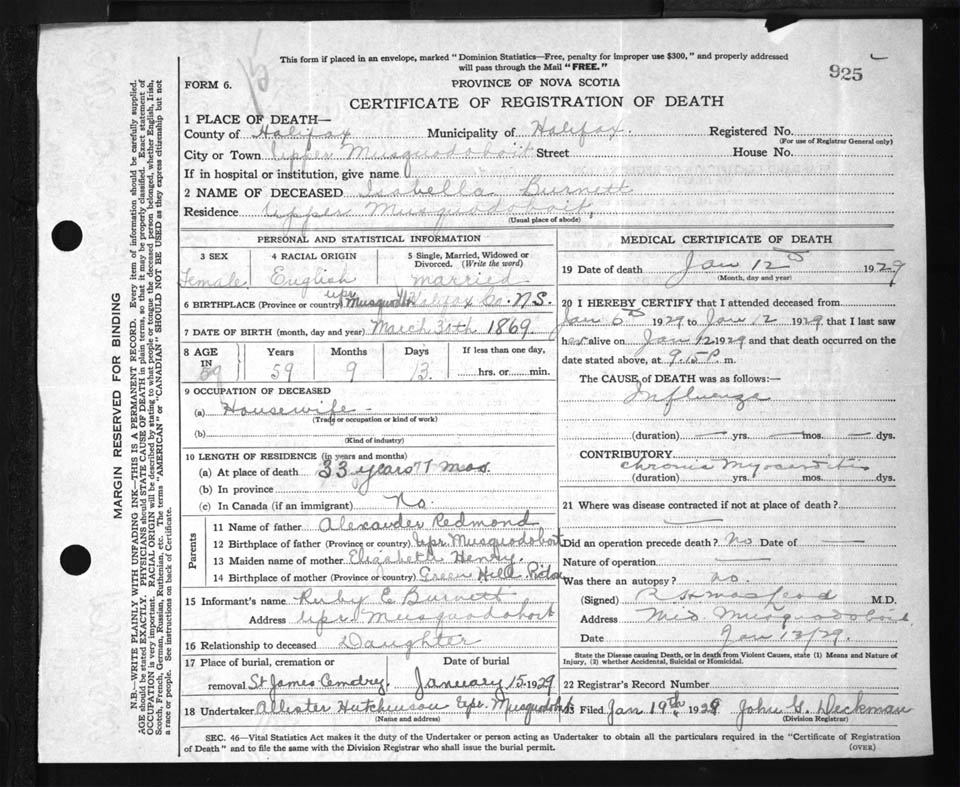 This form if placed in an envelope, marked "Dominion Statistics—Free, penalty for improper use $300," and properly addressed
will pass through the Mail "FREE."
925
FORM 6.
PROVINCE OF NOVA SCOTIA
CERTIFICATE OF REGISTRATION OF DEATH
1 PLACE OF DEATH—
County of Halifax Municipality of Halifax. Registered No.
(For use of Registrar General only)
City or Town Upper Musquodoboit Street House No.
If in hospital or institution, give name
2 NAME OF DECEASED Isabella Burnett
Residence Upper Musquodoboit,
(Usual place of abode)
PERSONAL AND STATISTICAL INFORMATION
3 SEX 4 RACIAL ORIGIN 5 Single, Married, Widowed or
Divorced. (Write the word)
Female English married
6 BIRTHPLACE (Province or country) upr Musquodbt Halifax Co. N.S.
7 DATE OF BIRTH (month, day and year) March 30th 1869.
8 AGE Years Months Days If less than one day,
IN 59 59 9 13. hrs. or min.
9 OCCUPATION OF DECEASED
(a) Housewife -
(Trade or occupation or kind of work)
(b)
(Kind of industry)
10 LENGTH OF RESIDENCE (in years and months)
(a) At place of death 33 years 7 mos.
(b) In province
(c) In Canada (if an immigrant) No.
Parents
11 Name of father Alexander Redmond
12 Birthplace of father (Province or country) Upr. Musquodoboit
13 Maiden name of mother Elizabeth Henry
14 Birthplace of mother (Province or country) Green Hill Pictou
15 Informant's name E Burnett
Address Upr. Musquodoboit
16 Relationship to deceased Daughter
17 Place of burial, cremation or Date of burial
removal St James Cemetry. January 15-1929
18 Undertaker Allister Hutchinson Upr. Musquodobt
(Name and address)
MEDICAL CERTIFICATE OF DEATH
19 Date of death Jan 12 1929
(Month, day and year)
20 I HEREBY CERTIFY that I attended deceased from
Jan 6 1929 to Jan 12 1929 that I last saw
her alive on Jan 12 1929 and that death occurred on the
date stated above, at 9.15 P m.
The CAUSE of DEATH was as follows:—
Influenza
(duration) — yrs. — mos. — dys.
CONTRIBUTORY
chronic Myocarditis
(duration) yrs. mos. dys.
21 Where was disease contracted if not at place of death?
—
Did an operation precede death? no Date of —
Nature of operation —
Was there an autopsy? no.
(Signed) M.D.
Address Mid. Musquodoboit
Date Jan 13/29.
State the Disease causing Death, or in death from Violent Causes, state (1) Means and Nature of
Injury, (2) whether Accidental, Suicidal or Homicidal.
22 Registrar's Record Number
23 Filed Jan 19th 1929 John G. Deckman
(Division Registrar)
SEC. 46—Vital Statistics Act makes it the duty of the Undertaker or person acting as Undertaker to obtain all the particulars required in the "Certificate of Registration
of Death" and to file the same with the Division Registrar who shall issue the burial permit. (OVER)
MARGIN RESERVED FOR BINDING
N.B.—WRITE PLAINLY WITH UNFADING INK—THIS IS A PERMANENT RECORD. Every item of information should be carefully supplied.
AGE should be stated EXACTLY. PHYSICIANS should STATE CAUSE OF DEATH in plain terms, so that it may be properly classified. Exact statement of
OCCUPATION is very important. RACIAL ORIGIN will be described by stating to what people or tongue the deceased person belonged, whether English, Irish,
Scotch, French, German, Russian, Ruthenian, etc. The terms "AMERICAN" or "CANADIAN" SHOULD NOT BE USED as they express citizenship but not
a race or people. See instructions on back of Certificate.